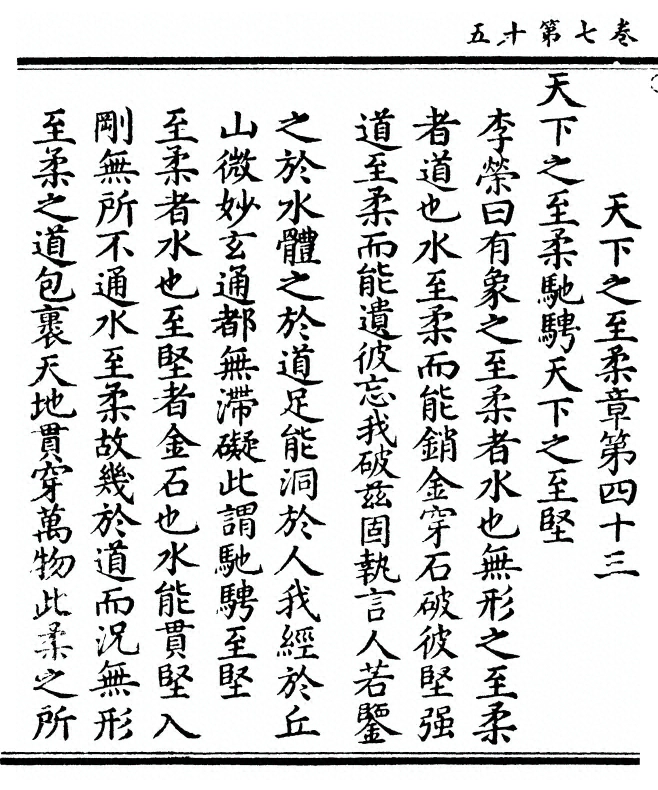 卷七第十五
天下之至柔章第四十三
天下之至柔馳騁天下之至堅
李榮曰有象之至柔者水也無形之至柔
者道也水至柔而能銷金穿石破彼堅强
道至柔而能遺彼忘我破茲固執言人若鑒
之於水體之於道足能洞於人我經於丘
山微妙玄通都無滯礙此謂馳騁至堅
至柔者水也至堅者金石也水能貫堅入
剛無所不通水至柔故幾於道而況無形
至柔之道包裹天地貫穿萬物此柔之所